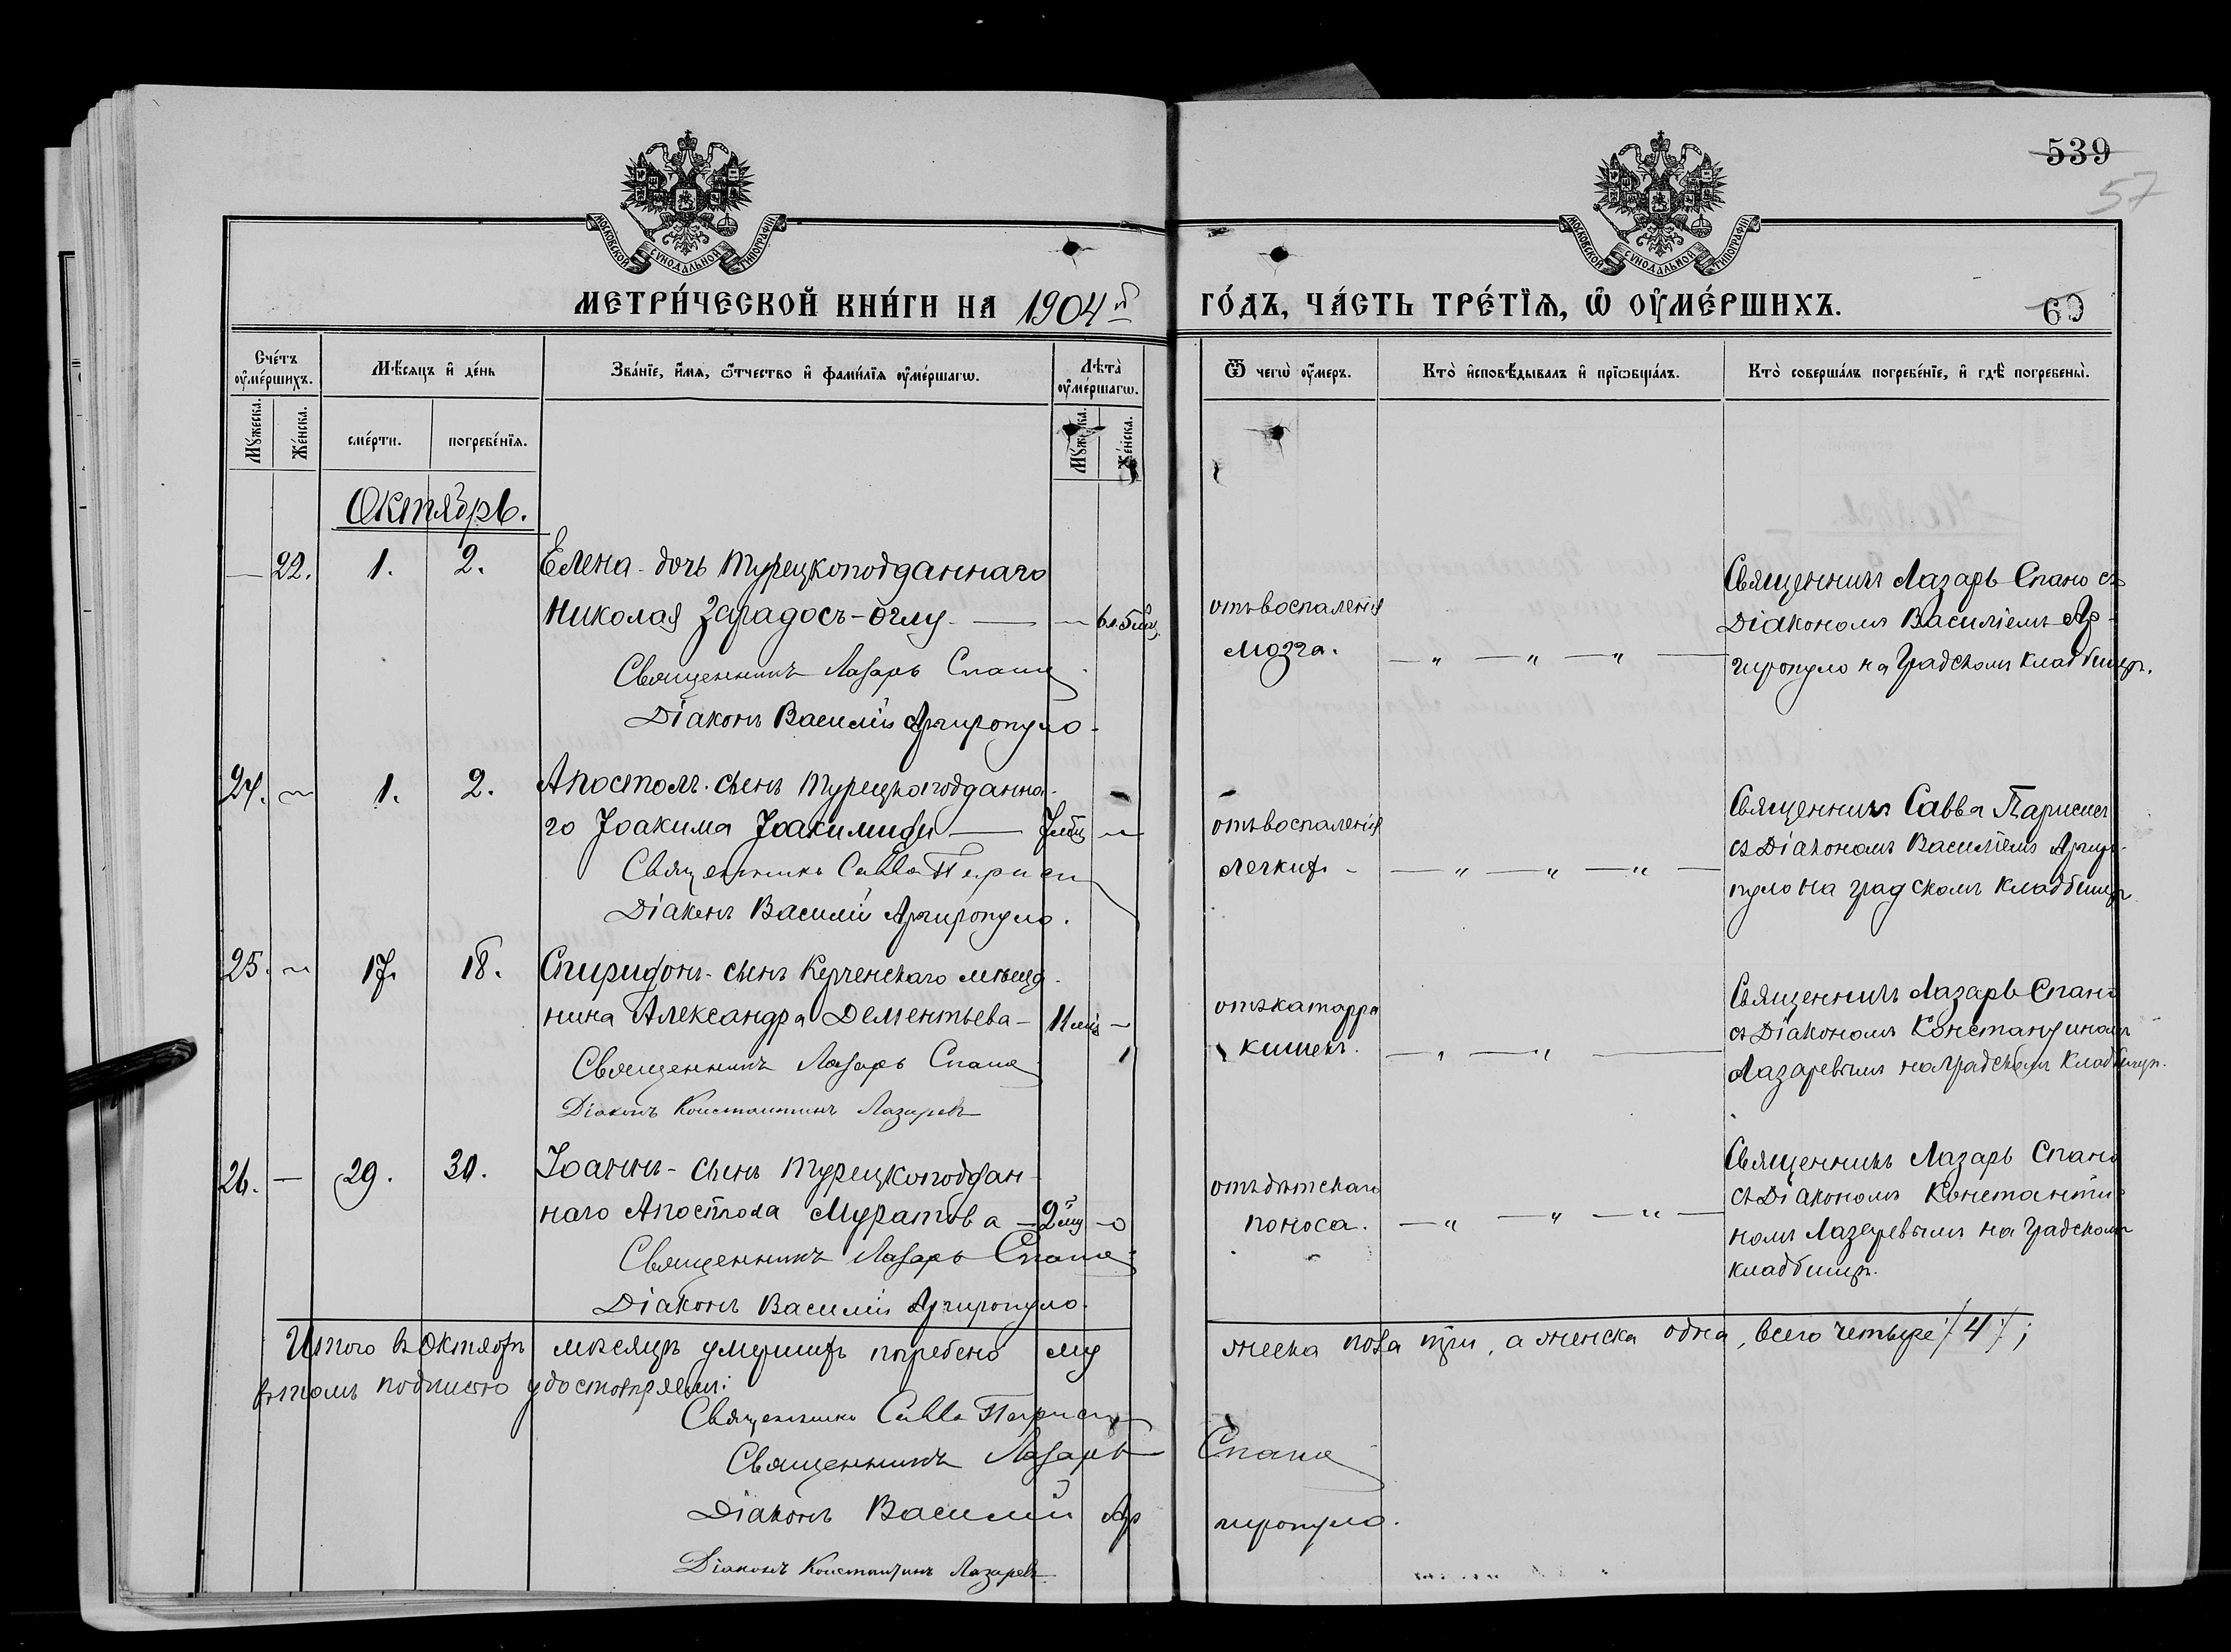 539
57
МОСКОВСКОЙ СѴНОДАЛЬНОЙ ТИПОГРАФІИ
МОСКОВСКОЙ СѴНОДАЛЬНОЙ ТИПОГРАФІИ
МЕТРИ́ЧЕСКОЙ КНИ́ГИ НА 1904й
ГО́ДЪ, ЧА́СТЬ ТРЕ́ТІѦ, Ѡ҆ ОУ҆МЕ́РШИХЪ.
60
Сче́тъ оу҆ме́ршихъ.
Мѣ́сяцъ и҆ де́нь
Зва́нїе, и҆́мѧ, ѻ҆́тчество и҆ фами́лїѧ оу҆ме́ршагѡ.
Лѣта̀ оу҆ме́ршагѡ.
Ѿ чегѡ̀ оу҆́меръ.
Кто̀ и҆сповѣ́дывалъ и҆ прїѡбща́лъ.
Кто̀ соверша́лъ погребе́нїе, и҆ гдѣ̀ погребены̀.
Мꙋ́жеска.
Же́нска.
сме́рти.
погребе́нїѧ.
Мꙋ́жеска.
Же́нска.
Октябрь.
— 22. 1. 2. Елена - дочь турецкоподданнаго
Николая Зарадосъ-оглу. — 6 л. 5 мц.
Священникъ Лазарь Спано
Діаконъ Василій Аргиропуло.
отъ воспаленія
мозга. — „ — „ — „ —
Священникъ Лазарь Спано съ
Діакономъ Василіемъ Ар-
гиропуло на Градскомъ кладбищѣ.
24. — 1. 2. Апостолъ - сынъ турецкоподданна-
го Іоакима Іоакимиди — 7 мц —
Священникъ Савва Париси
Діаконъ Василій Аргиропуло.
отъ воспаленія
легкихъ — „ — „ — „ —
Священникъ Савва Париси
съ Діакономъ Василіемъ Аргиро-
пуло на градскомъ кладбищѣ
25. — 17. 18. Спиридонъ - сынъ Керченскаго мѣща-
нина Александра Дементьева —
Священникъ Лазарь Спано
Діаконъ Константинъ Лазаревъ
отъ катарра
кишекъ. — „ — „ —
Священникъ Лазарь Спано
съ Діакономъ Константиномъ
Лазаревымъ на градскомъ кладбищѣ.
26. — 29. 30. Іоаннъ - сынъ турецкоподдан-
наго Апостола Муратова — 2 мц —
Священникъ Лазарь Спано
Діаконъ Василій Аргиропуло.
отъ дѣтскаго
поноса. — „ — „ — „ —
Священникъ Лазарь Спано
съ Діакономъ Константи-
номъ Лазаревымъ на градскомъ
кладбищѣ.
Итого въ Октябрѣ мѣсяцѣ умершихъ погребено му
жеска пола три, а женска одна, всего четыре /4/;
въ томъ подписью удостовѣряемъ:
Священникъ Савва Париси
Священникъ Лазарь Спано
Діаконъ Василій Аргиропуло.
Діаконъ Константинъ Лазаревъ